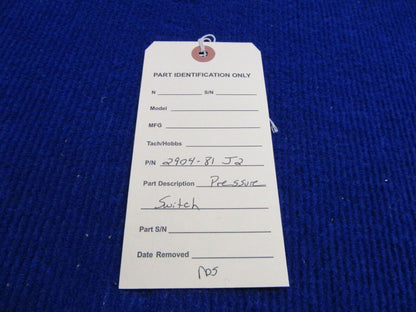 PART IDENTIFICATION ONLY
N S/N
Model
MFG
Tach/Hobbs
P/N 2904-81 J2
Part Description Pressure
Switch
Part S/N
Date Removed